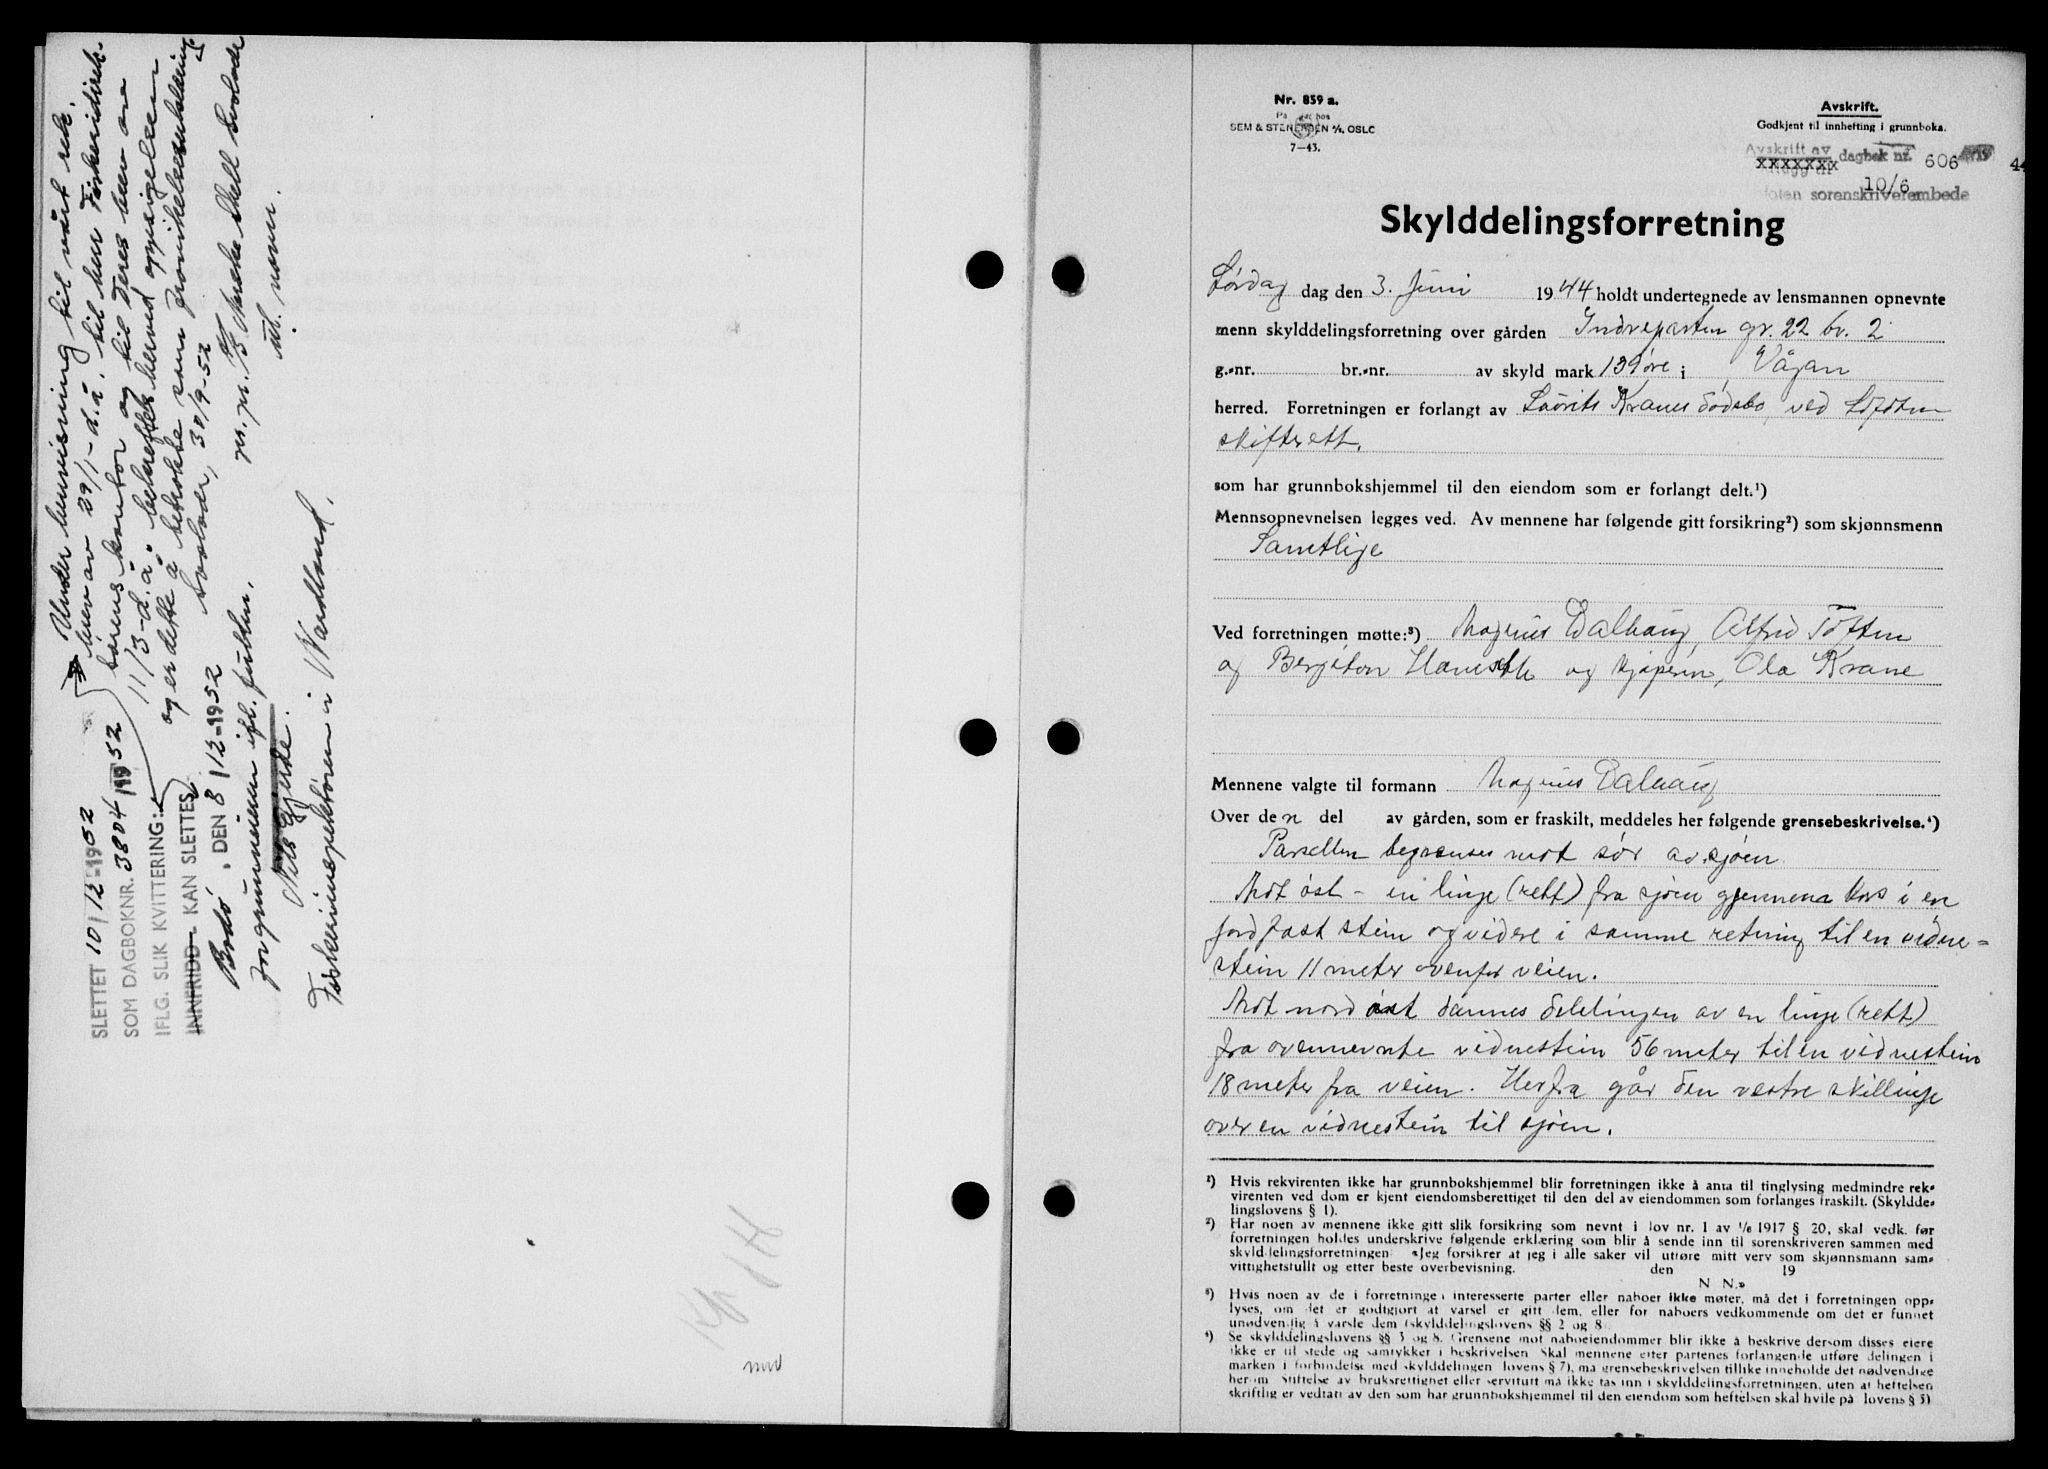 Under henvisning til vårt rek.
brev av 29/1- d.å. til herr Fiskeridirek-
tørens kontor og til Deres brev av
11/3-d.å. bekreftes herved oppsigelsen
og er dette å betrakte som
Svolvær, 30/9-52
pr. pr. A/S Norske Shell Svolvær
SLETTET 10/12-1952
SOM DAGBOKNR. 3804 1952
IFLG. SLIK KVITTERING:
INNFRIDD - KAN SLETTES
Bodø, DEN 8/12-1952
for grunneieren ifl. fullm.
Nils Gjerde.
Fiskeriinspektøren i Nordland.
Nr. 859 a.
SEM & STENERSEN A/S, OSLO
7—43.
Avskrift.
Godkjent til innhefting i grunnboka.
Avskrift av
xxxxxxx dagbok nr. 606 19 44
10/6
foten sorenskriverembede
Skylddelingsforretning
Lørdag dag den 3. Juni 1944 holdt undertegnede av lensmannen opnevnte
menn skylddelingsforretning over gården Indreparten gr. 22 br. 2
g.-nr. br.-nr. av skyld mark 139 øre i Vågan
herred. Forretningen er forlangt av Laurits Kranes dødsbo, ved Lofoten
skifterett.
som har grunnbokshjemmel til den eiendom som er forlangt delt.¹)
Mennsopnevnelsen legges ved. Av mennene har følgende gitt forsikring²) som skjønnsmenn
Samtlige
Ved forretningen møtte:³) Magnus Dalhaug, Alfred Toften
og Bergiton og kjøperen, Ola Krane
Mennene valgte til formann Magnus Dalhaug
Over den del av gården, som er fraskilt, meddeles her følgende grensebeskrivelse.⁴)
Parsellen begrenses mot sør av sjøen.
Mot øst - en linje (rett) fra sjøen gjennem kors i en
jordfast stein og videre i samme retning til en vidne-
stein 11 meter ovenfor veien.
Mot nord øst dannes delelingen av en linje (rett)
fra ovennevnte vidnestein 56 meter til en vidnestein
18 meter fra veien. Herfra går den vestre skillinje
over en vidnestein til sjøen.
¹) Hvis rekvirenten ikke har grunnbokshjemmel blir forretningen ikke å anta til tinglysing medmindre rek-
virenten ved dom er kjent eiendomsberettiget til den del av eiendommen som forlanges fraskilt. (Skyldde-
lingslovens § 1).
²) Har noen av mennene ikke gitt slik forsikring som nevnt i lov nr. 1 av 1/6 1917 § 20, skal vedk. før
forretningen holdes underskrive følgende erklæring som blir å sende inn til sorenskriveren sammen med
skylddelingsforretningen: «Jeg forsikrer at jeg i alle saker vil utføre mitt verv som skjønnsmann sam-
vittighetsfullt og etter beste overbevisning. den 19
N. N.»
³) Hvis noen av de i forretningen interesserte parter eller naboer ikke møter, må det i forretningen opp-
lyses, om det er godtgjort at varsel er gitt dem, eller for naboers vedkommende om det er funnet
unødvendig å varsle dem (skylddelingslovens §§ 2 og 8).
⁴) Se skylddelingslovens §§ 3 og 8. Grensene mot naboeiendommer blir ikke å beskrive dersom disses eiere
ikke er til stede og samtykker i beskrivelsen. Skal mennene etter partenes forlangende utføre delingen i
marken i forbindelse med skylddelingen (lovens § 7), må grensebeskrivelsen tillike inneholde det nødvendige
herom. Stiftelse av bruksrettighet eller servitutt må ikke tas inn i skylddelingsforretningen, uten at heftelsen
skriftlig er vedtatt av den som har grunnbokshjemmel til den eiendom som heftelsen skal hvile på (lovens § 5)